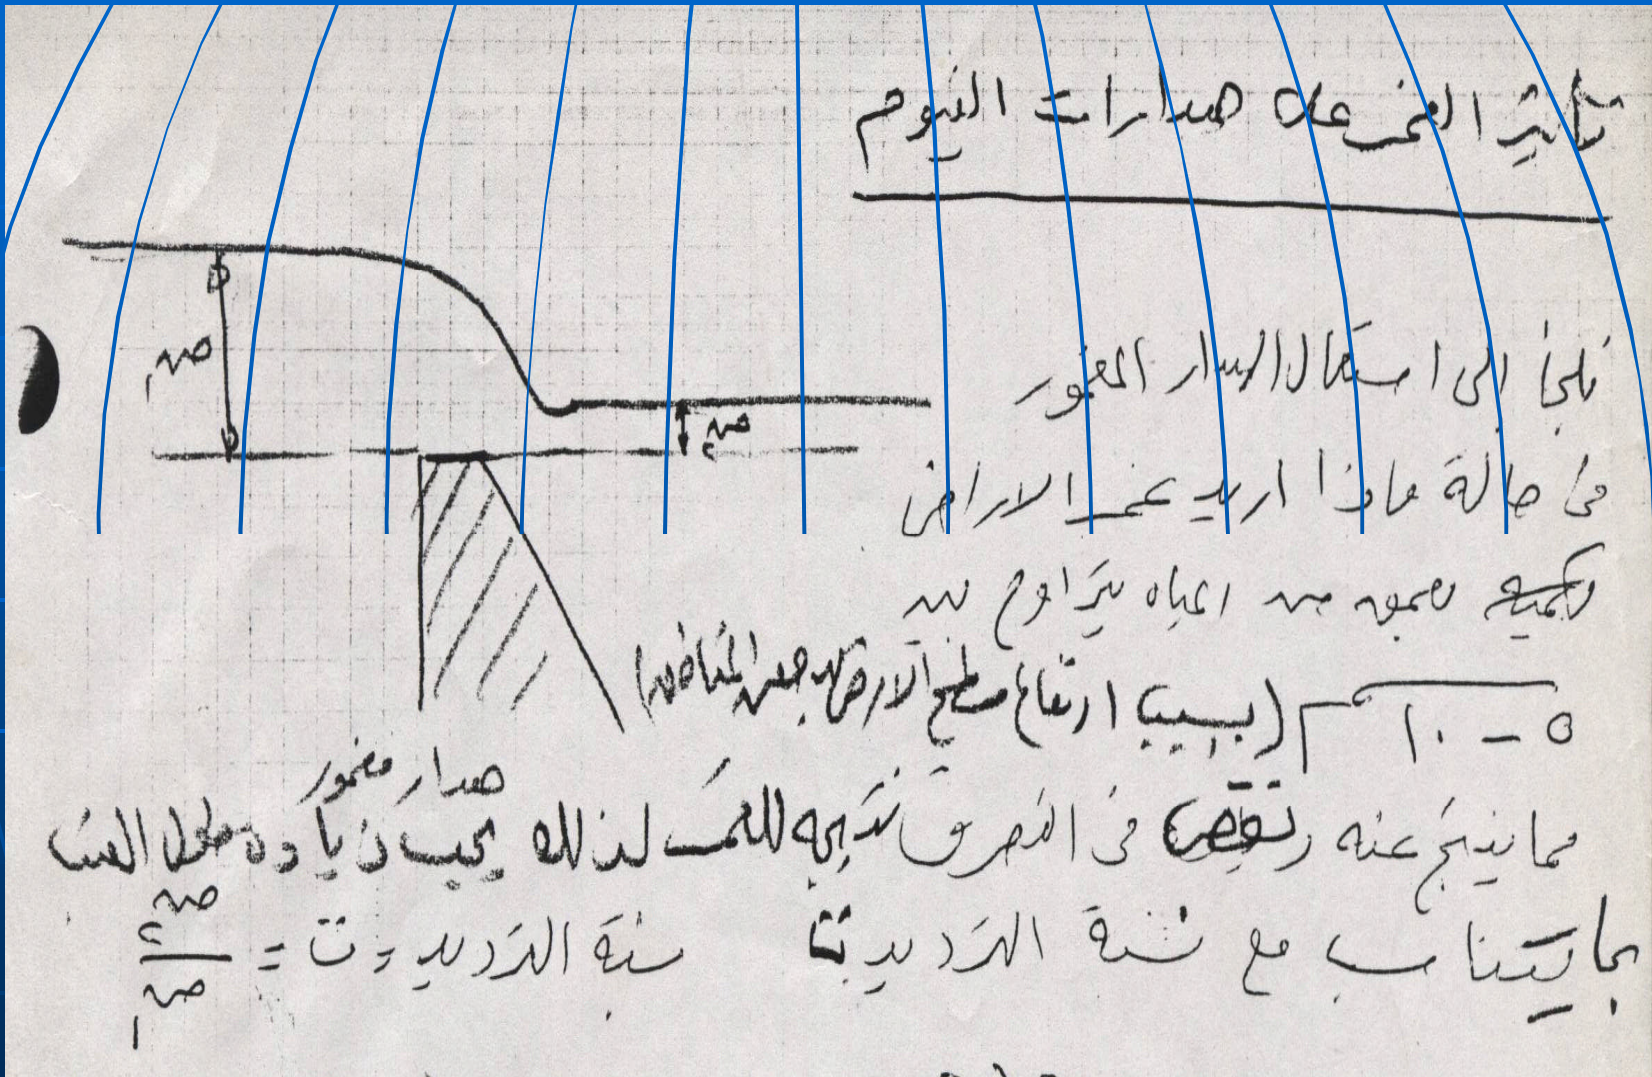 تأثير الغمر على هدارات الفيوم
نلجأ الى استعمال الهدار المغمور
فى حالة ماذا اريد غمر الاراضى
بعمق من المياه يتراوح بين
٥ - ١٠ (بسبب ارتفاع سطح الارض بعض المناطق)
مما ينتج عنه نقص فى التصرف نتيجه للغمر لذلك يجب زيادة طول العتب
هدار مغمور
بما يتناسب مع نسبة الترديد ت
نسبة الترديد = ت = ص٢ / ص١
ص١
ص٢